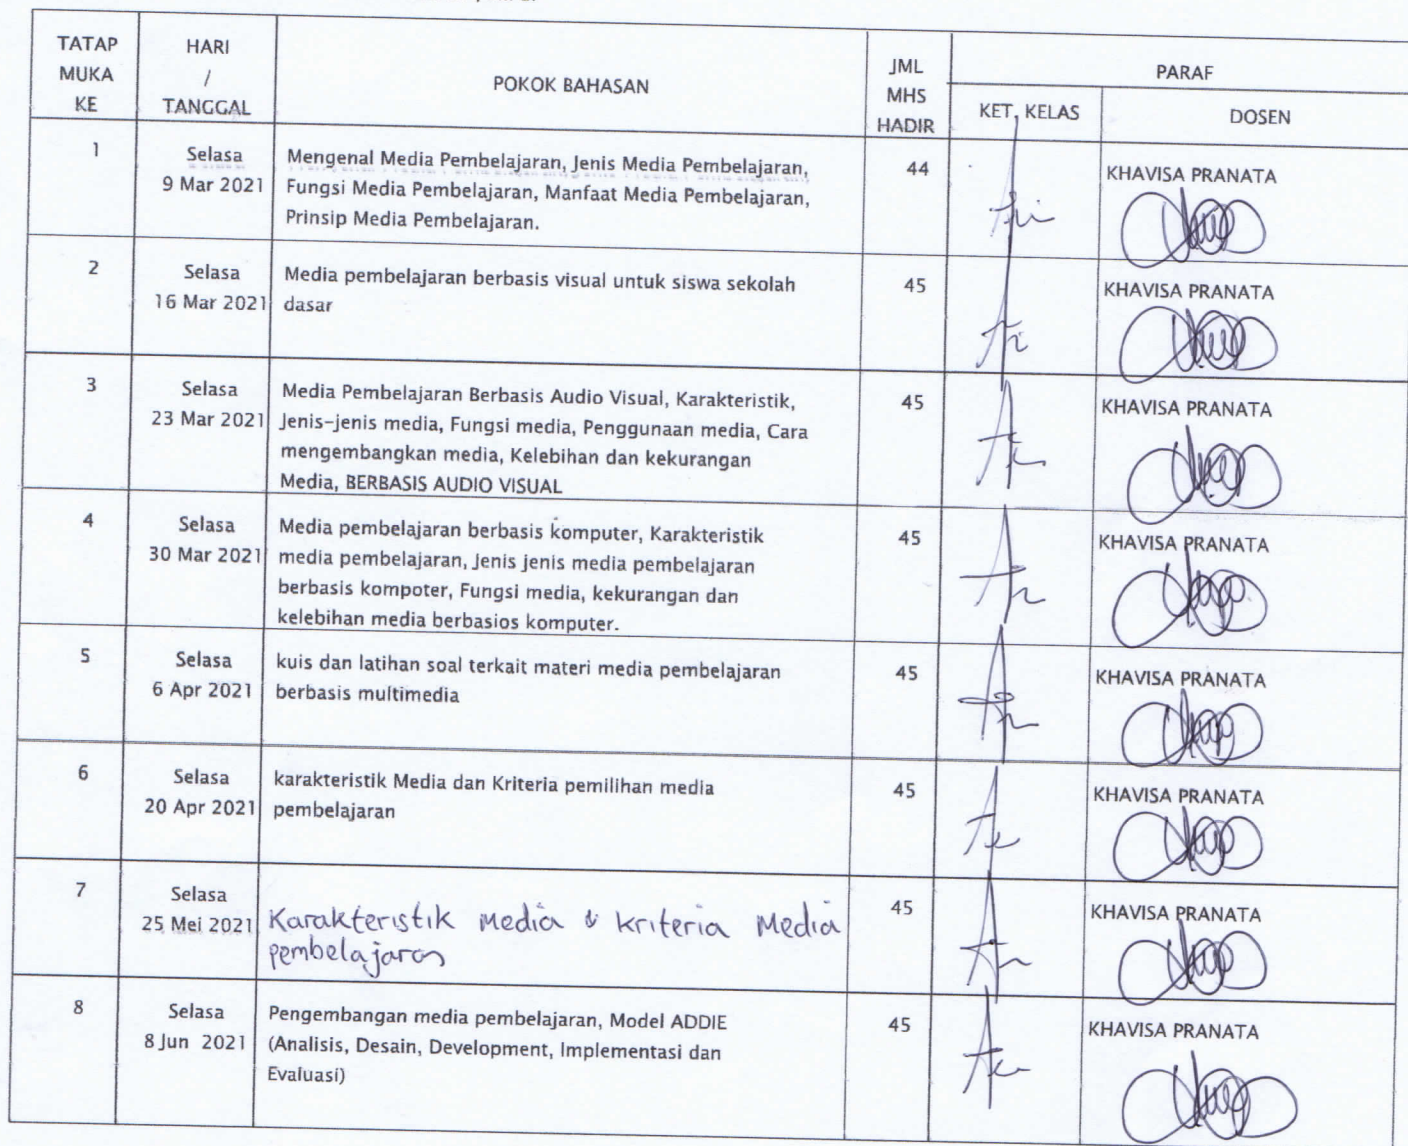 TATAP
MUKA
KE
HARI
/
TANGGAL
POKOK BAHASAN
JML
MHS
HADIR
PARAF
KET. KELAS
DOSEN
1
Selasa
9 Mar 2021
Mengenal Media Pembelajaran, Jenis Media Pembelajaran,
Fungsi Media Pembelajaran, Manfaat Media Pembelajaran,
Prinsip Media Pembelajaran.
44
KHAVISA PRANATA
2
Selasa
16 Mar 2021
Media pembelajaran berbasis visual untuk siswa sekolah
dasar
45
KHAVISA PRANATA
3
Selasa
23 Mar 2021
Media Pembelajaran Berbasis Audio Visual, Karakteristik,
Jenis-jenis media, Fungsi media, Penggunaan media, Cara
mengembangkan media, Kelebihan dan kekurangan
Media, BERBASIS AUDIO VISUAL
45
KHAVISA PRANATA
4
Selasa
30 Mar 2021
Media pembelajaran berbasis komputer, Karakteristik
media pembelajaran, Jenis jenis media pembelajaran
berbasis kompoter, Fungsi media, kekurangan dan
kelebihan media berbasios komputer.
45
KHAVISA PRANATA
5
Selasa
6 Apr 2021
kuis dan latihan soal terkait materi media pembelajaran
berbasis multimedia
45
KHAVISA PRANATA
6
Selasa
20 Apr 2021
karakteristik Media dan Kriteria pemilihan media
pembelajaran
45
KHAVISA PRANATA
7
Selasa
25 Mei 2021
Karakteristik Media & kriteria Media
pembelajaran
45
KHAVISA PRANATA
8
Selasa
8 Jun 2021
Pengembangan media pembelajaran, Model ADDIE
(Analisis, Desain, Development, Implementasi dan
Evaluasi)
45
KHAVISA PRANATA